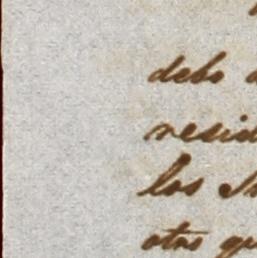 debo
resid
los
otro qu